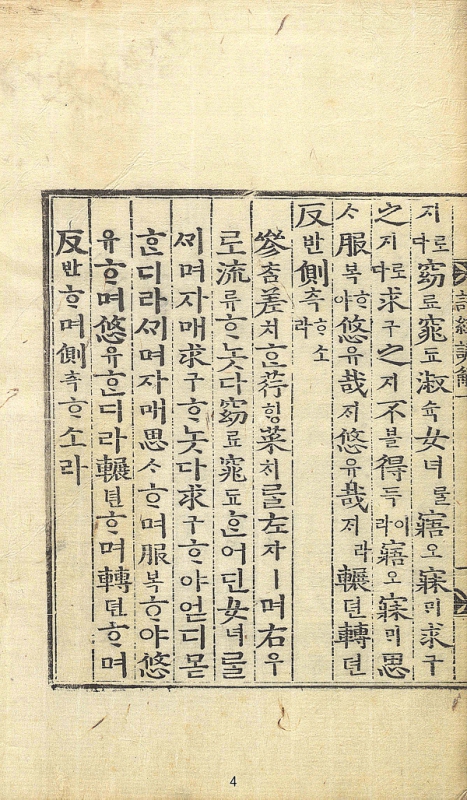 詩經諺解一
지로다窈료窕됴淑슉女녀를寤오寐ᄆᆡ求구
之지로다求구之지不블得득이라寤오寐ᄆᆡ思
ᄉᆞ服복ᄒᆞ야悠유哉ᄌᆡ悠유哉ᄌᆡ라輾뎐轉뎐
反반側측ᄒᆞ소라
參참差치ᄒᆞᆫ荇ᄒᆡᆼ菜ᄎᆡ를左자ㅣ며右우
로流류ᄒᆞ놋다窈료窕됴ᄒᆞᆫ어딘女녀를
ᄭᆡ며자매求구ᄒᆞ놋다求구ᄒᆞ야얻디몯
ᄒᆞᆫ디라ᄭᆡ며자매思ᄉᆞᄒᆞ며服복ᄒᆞ야悠
유ᄒᆞ며悠유ᄒᆞᆫ디라輾뎐ᄒᆞ며轉뎐ᄒᆞ며
反반ᄒᆞ며側측ᄒᆞ소라
4